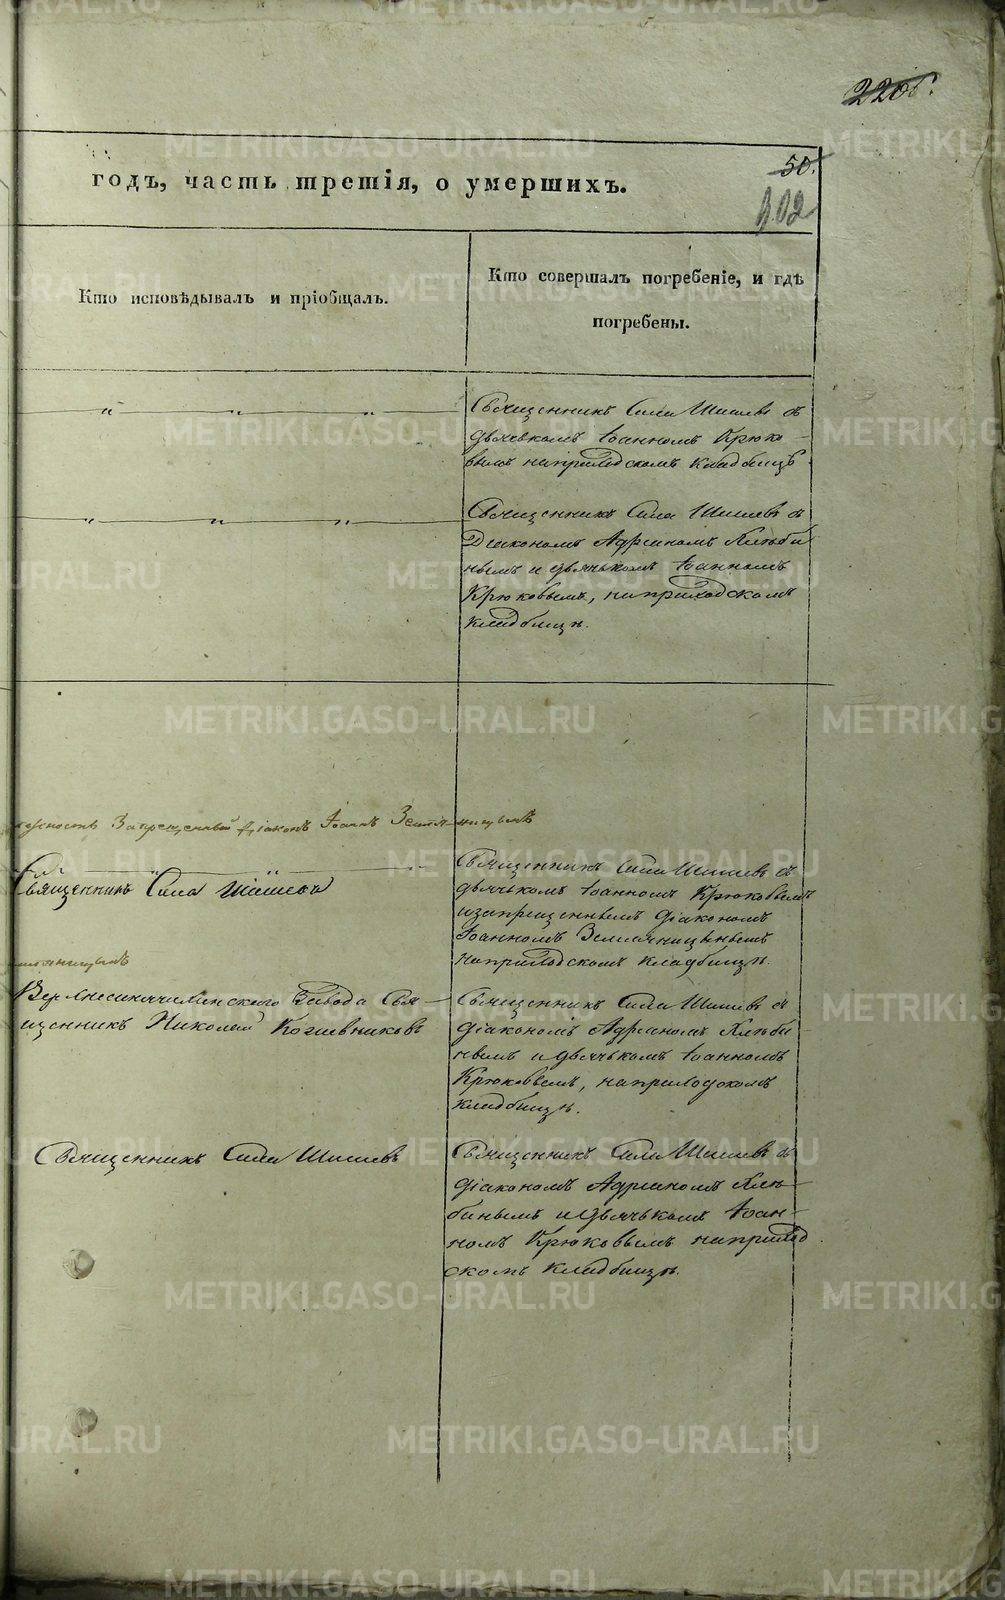 220б.
50.
102
годъ, часть третія, о умершихъ.
Кто исповѣдывалъ и пріобщалъ.
Кто совершалъ погребеніе, и гдѣ
погребены.
— „ — „ — „ —
Священникъ Сила Шишевъ съ
дьячкомъ Іоанномъ Крюко-
вымъ на приходскомъ кладбищѣ
— „ — „ — „ —
Священникъ Сила Шишевъ съ
Діакономъ Адріаномъ Хлѣби
нымъ и дьячькомъ Іоанномъ
Крюковымъ, на приходскомъ
кладбищѣ.
Запрещенный діаконъ Іоаннъ
Священникъ Сила Шишевъ
Священникъ Сила Шишевъ съ
дьячькомъ Іоанномъ Крюковымъ
и запрещеннымъ діакономъ
Іоанномъ Земляницынымъ
на приходскомъ кладбищѣ.
Завода Свя-
щенникъ Николай Кожевниковъ
Священникъ Сила Шишевъ съ
діакономъ Адріаномъ Хлѣби
нымъ и дьячькомъ Іоанномъ
Крюковымъ, на приходскомъ
кладбищѣ.
Священникъ Сила Шишевъ
Священникъ Сила Шишевъ съ
діакономъ Адріаномъ Хлѣ-
бинымъ и дьячькомъ Іоан-
номъ Крюковымъ на приход
скомъ кладбищѣ.
METRIKI.GASO-URAL.RU